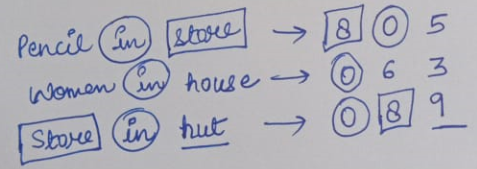 Pencil in store → 8 0 5
Women in house → 0 6 3
Store in hut → 0 8 9